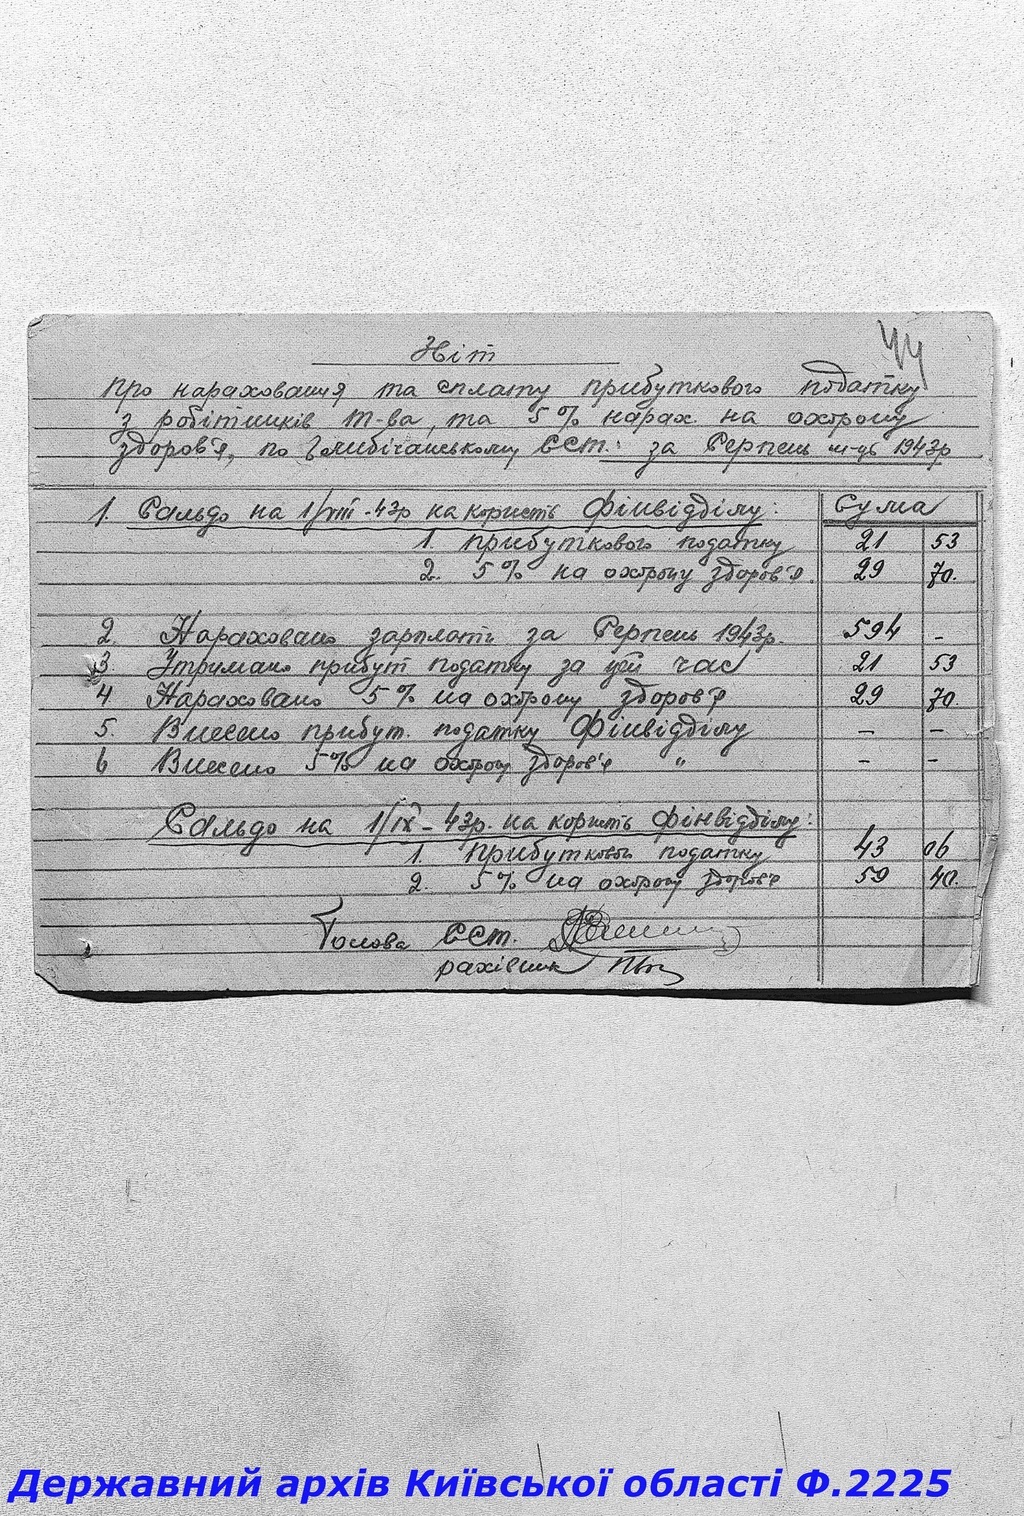 44
Звіт
про нараховання та сплату прибуткового податку
з робітників т-ва, та 5% нарах. на охорону
здоров'я, по Глибічанському ССТ. за Серпень м-ць 1943р
1. Сальдо на 1/VIII-43р на користь Фінвідділу: Сума
1. прибуткового податку 21 53
2. 5% на охорону здоров'я. 29 70.
2. Нараховано зарплати за Серпень 1943р. 594 -
3. Утримано прибут податку за цей час 21 53
4 Нараховано 5% на охорону здоров'я 29 70.
5. Внесено прибут. податку Фінвідділу - -
6 Внесено 5% на охорону здоров'я " - -
Сальдо на 1/IX-43р. на користь фінвідділу:
1. Прибутковог податку 43 06
2. 5% на охорону здоров'я 59 40.
Голова ССТ.
рахівник
Державний архів Київської області Ф.2225